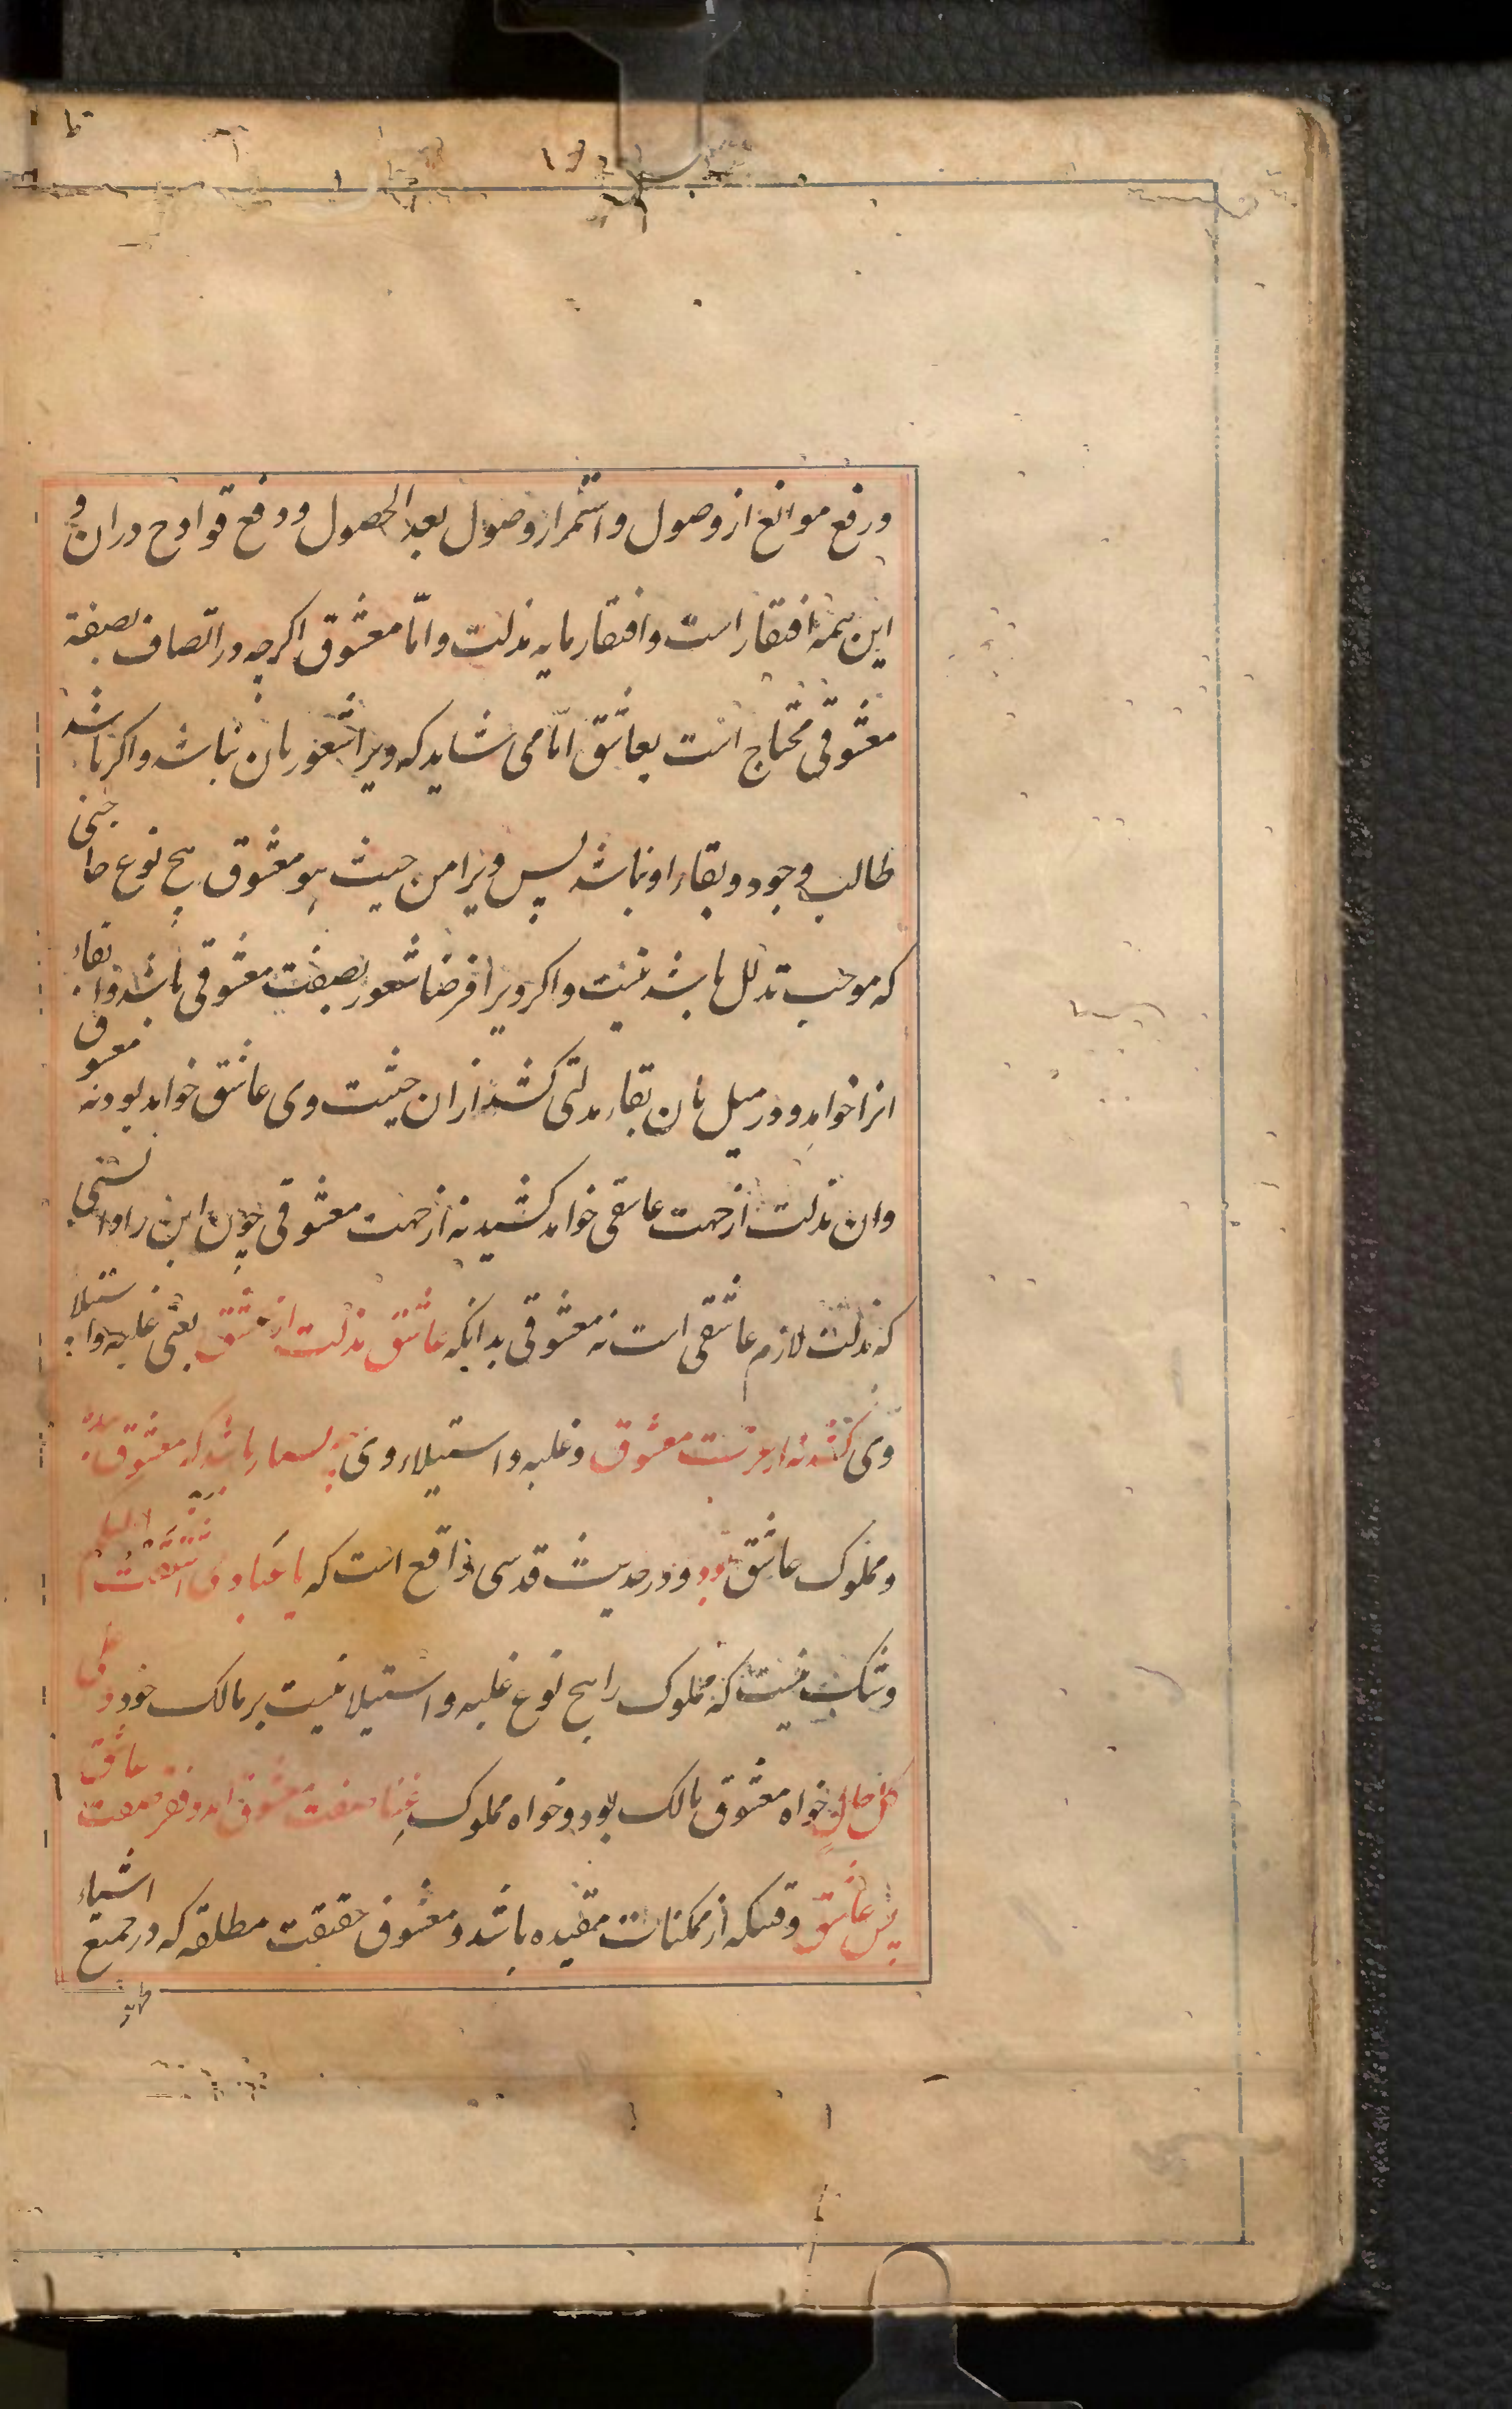 و رفع موانع از وصول و استمرار وصول بعد الحصول و دفع قوادح در ان و
این همه افتقار است و افتقار مایه مذلت و امّا معشوق اکرچه در اتّصاف بصفة
معشوقی محتاج است بعاشق امّا می شاید که ویرا شعور بان نباشد و اکر باشد
طالب وجود و بقاء او نباشد پس ویرا من حیث هو معشوق هیچ نوع حاجتی
که موجب تذلل باشد نیست و اکر ویرا فرضا شعور بصفت معشوقی باشد و ابقاء
انرا خواهد و در میل بان بقاء مذلتی کشد از ان حیثیت وی عاشق خواهد بود نه معشوق
وان مذلت از جهت عاشقی خواهد کشید نه از جهت معشوقی چون این را دانستی
که مذلت لازم عاشقی است نه معشوقی بدانکه عاشق مذلت از عشق یعنی غلبه و استیلاء
وی کشد نه از عزت معشوق و غلبه و استیلاء وی چه بسیار باشد که معشوق بنده
و مملوک عاشق بود و در حدیث قدسی واقع است که یا عبادی اشتقت الیکم
و شک نیست که مملوک را هیچ نوع غلبه و استیلا نیست بر مالک خود و علی
کل حال خواه معشوق مالک بود و خواه مملوک غِنا صفت معشوق امد و فقر صفت عاشق
پس عاشق وقتیکه از ممکنات مقیده باشد و معشوق حقیقت مطلقه که در جمیع اشیاء